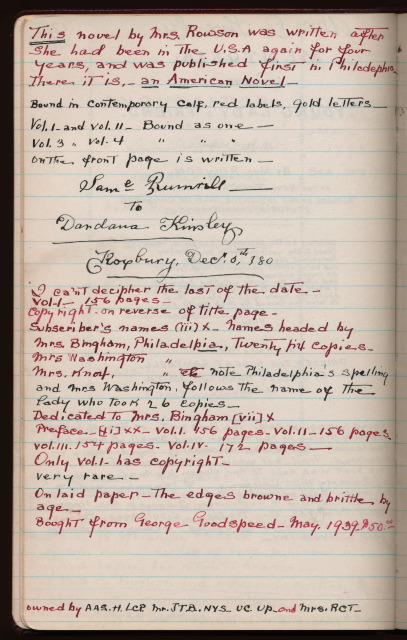 This novel by Mrs. Rowson was written after
she had been in The U.S.A again for four
years, and was published first in Philadelphia
There it is, - an American Novel -
Bound in contemporary calf, red labels, gold letters -
Vol. 1 - and vol. 11 - Bound as one -
Vol. 3 " vol. 4 " " " -
on the front page is written -
Sam'l Rumrill -
To
Dandana Kinsley
Roxbury, Dec'r. 5,th 180
I can't decipher the last of the date -
Vol-1 - 156 pages -
Copyright - on reverse of title page -
Subscriber's names (iii) x - names headed by
Mrs. Bingham, Philadelpia, Twenty six copies -
Mrs Washington "
Mrs. Knox, " note Philadelphia's spelling
and Mrs. Washington, follows the name of the
lady who took 26 copies -
Dedicated to Mrs. Bingham [vii] x
Preface - [i] xx - Vol. 1. 156 pages - Vol. 11 - 156 pages
vol. 111. 154 pages - Vol. IV - 172 pages -
Only Vol. 1 - has copyright -
very rare -
On laid paper - The edges browne and brittle by
age -
Bought from George Goodspeed - May. 1939 $50.00
owned by AAS. H. LCP. Mr. JTB. NYS - UC. UP. and Mrs. RCT -